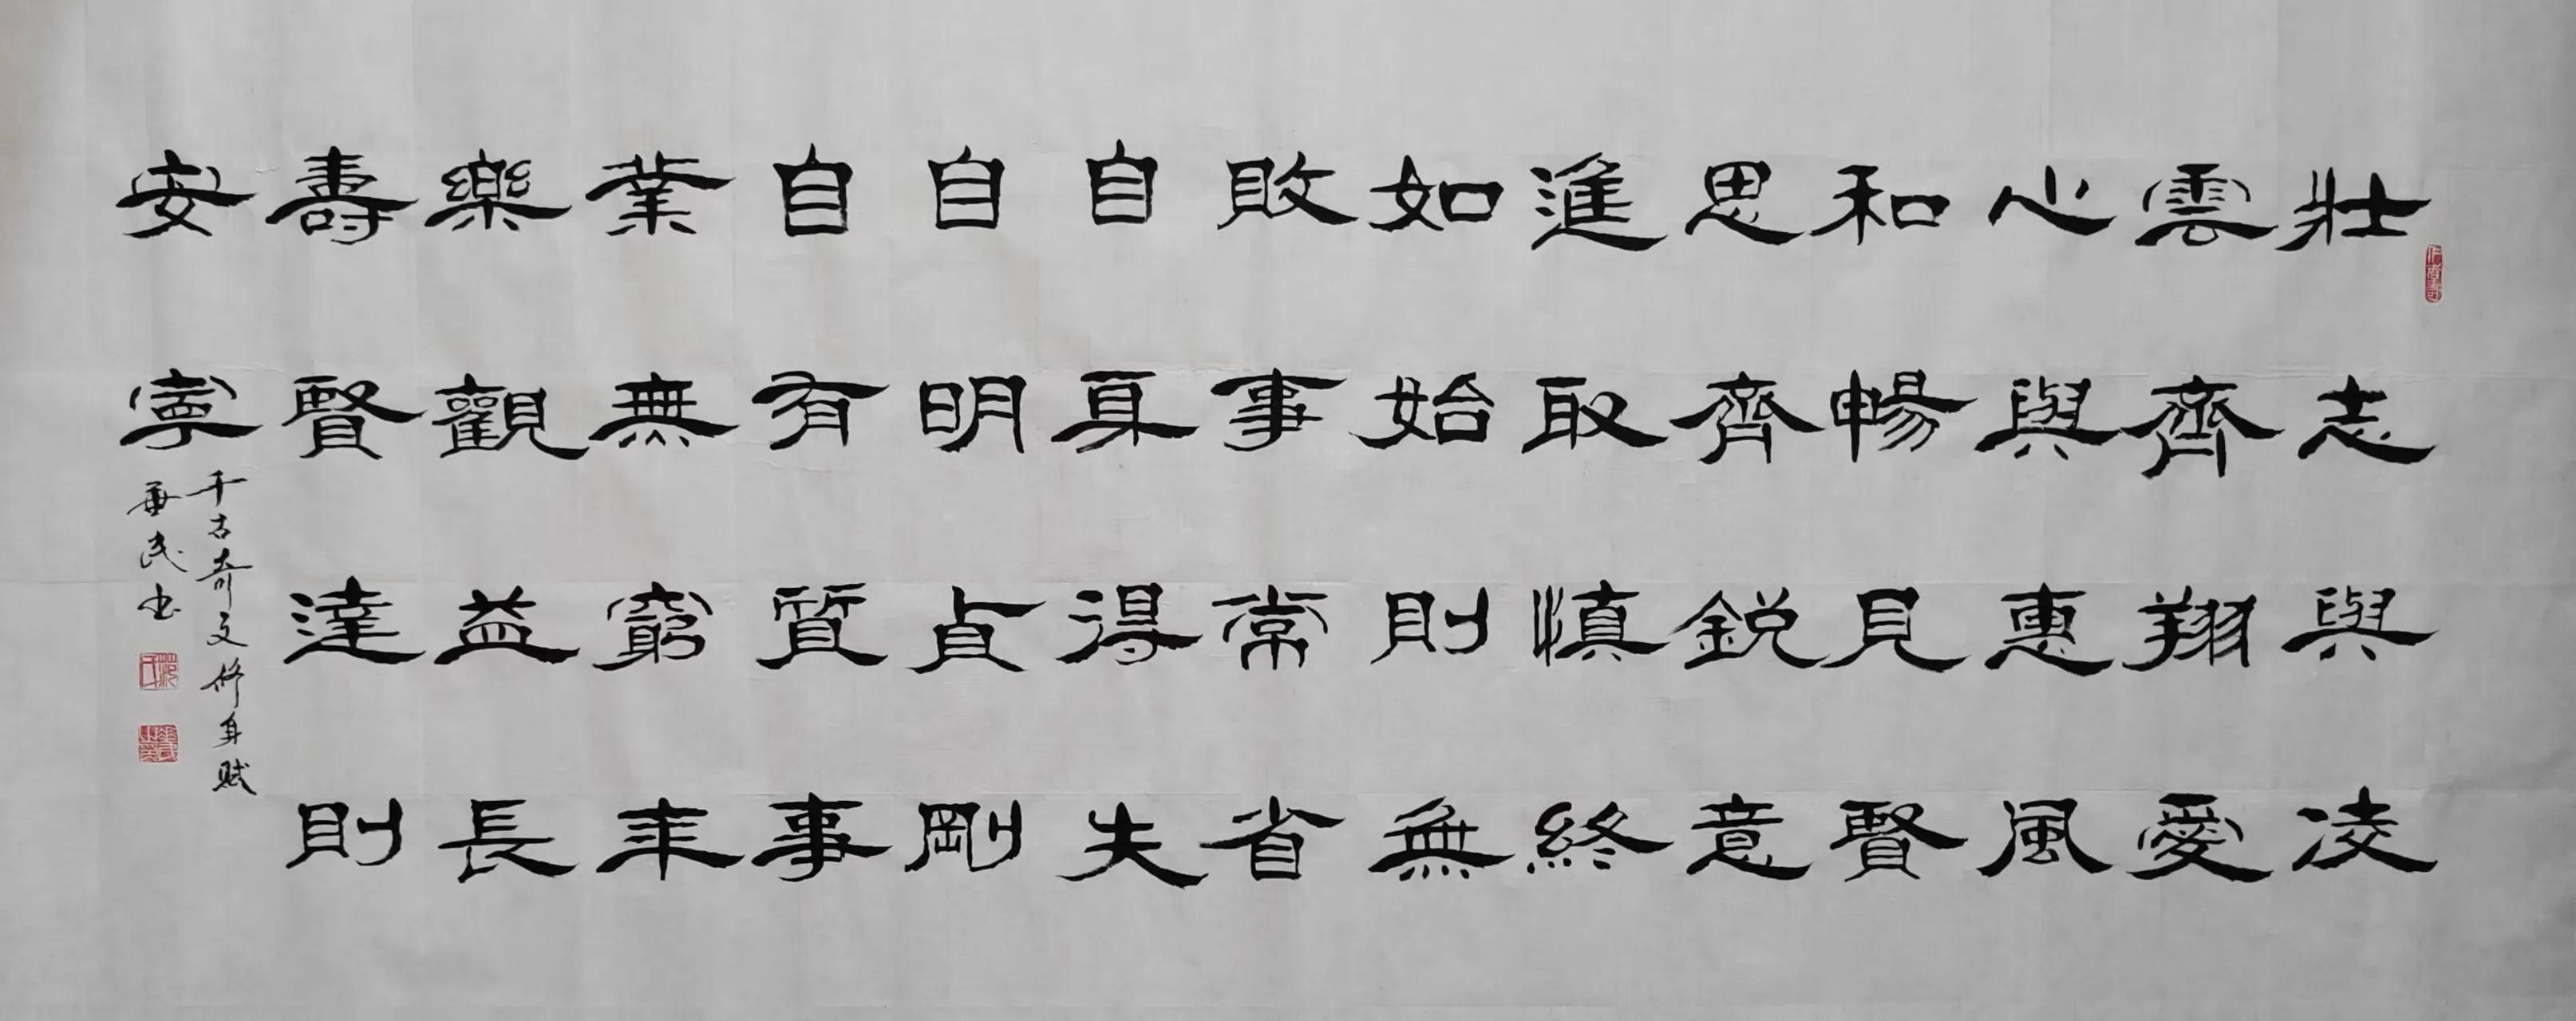 壯志與凌
雲齊翔愛
心與惠風
和暢見賢
思齊銳意
進取慎終
如始則無
敗事常省
自身得失
自明貞剛
自有質事
業無窮年
樂觀益長
壽賢達則
安寧
千古奇文修身賦
華民书